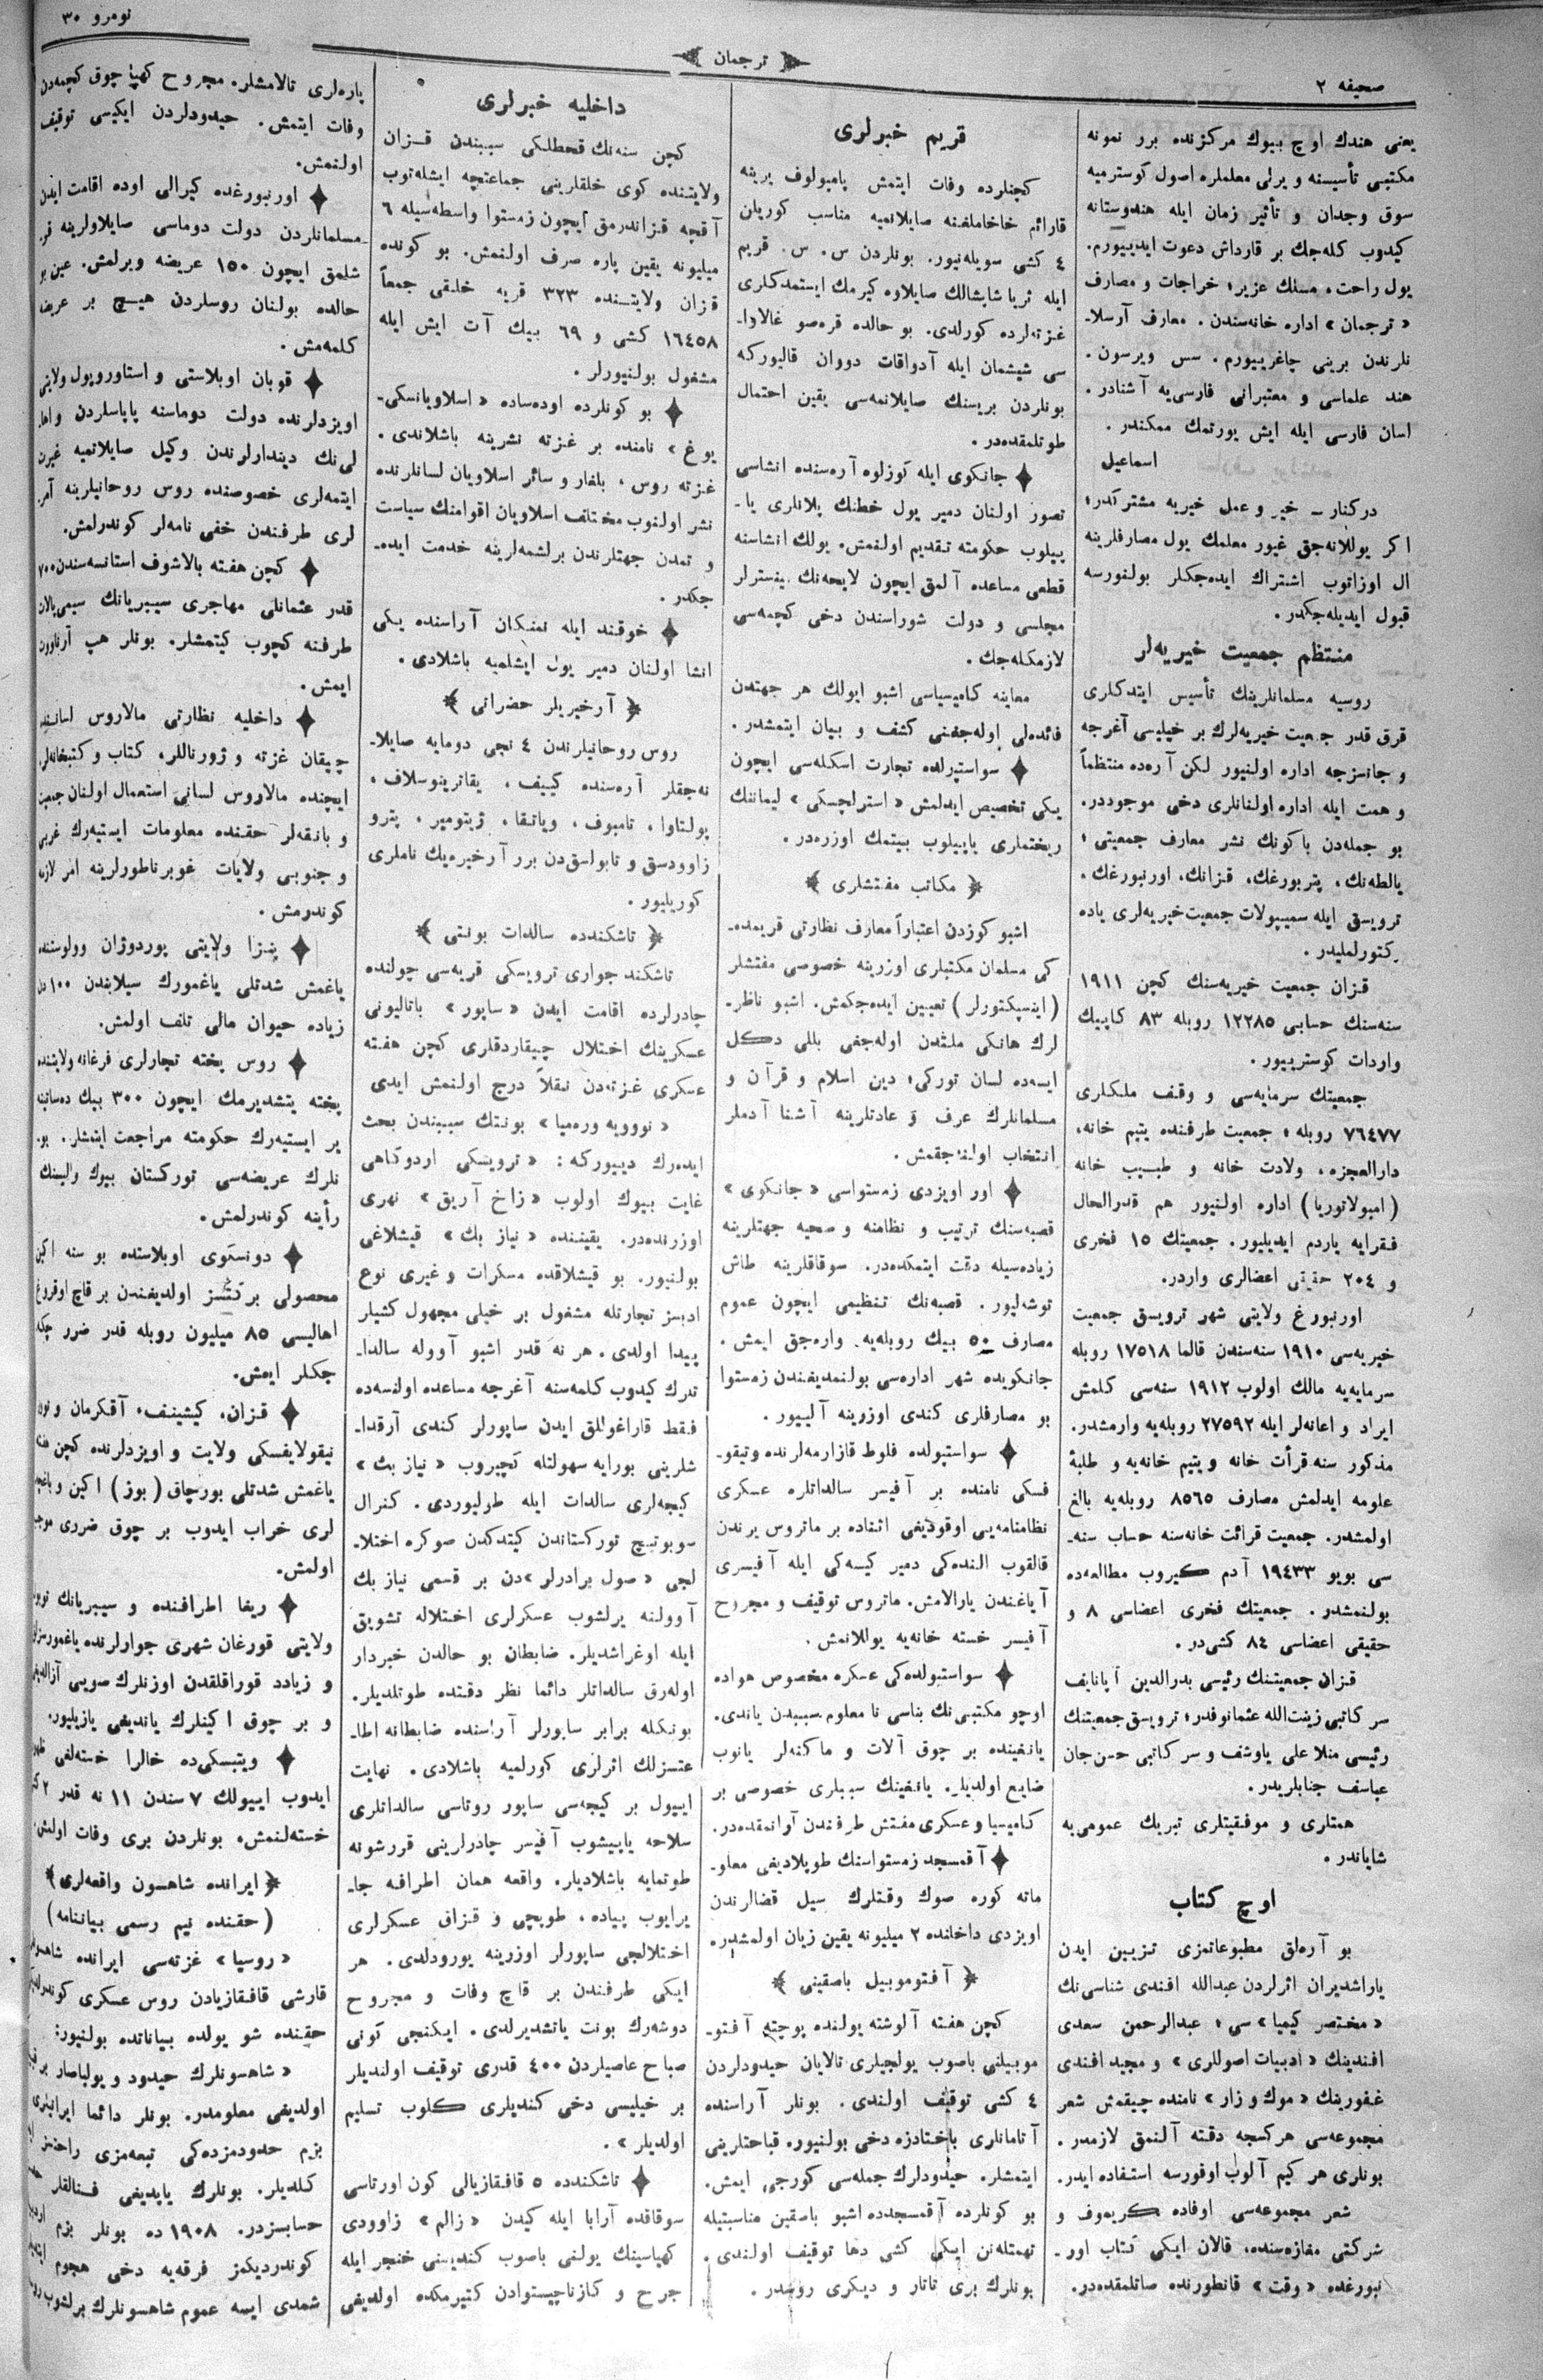 صحیفه ٢
ترجمان
نومرو ٣٠
یعنی هندك اوچ بیوك مركزنده برر نمونه
مكتبی تأسیسنه و یرلی معلملره اصول كوسترمیه
سوق وجدان و تأثیر زمان ایله هندوستانه
كیدوب كله‌جك بر قارداش دعوت ایدییورم.
یول راحت، مسلك عزیز؛ خراجات و مصارف
«ترجمان» اداره خانه‌سندن. معارف آرسلا-
نلرندن برینی چاغرییورم. سس ویرسون.
هند علماسی و معتبرانی فارسی‌یه آشنادر.
لسان فارسی ایله ایش یورتمك ممكندر.
اسماعیل
دركنار ـ خیر و عمل خیریه مشتركدر؛
اكر یوللانه‌جق غیور معلمك یول مصارفلرینه
ال اوزاتوب اشتراك ایده‌جكلر بولنورسه
قبول ایدیله‌جكدر.
منتظم جمعیت خیریه‌لر
روسیه مسلمانلرینك تأسیس ایتدكلری
قرق قدر جمعیت خیریه‌لرك بر خیلیسی آغرجه
و جانسزجه اداره اولنیور لكن آره‌ده منتظماً
و همت ایله اداره اولنانلری دخی موجوددر.
بو جمله‌دن باكونك نشر معارف جمعیتی؛
یالطه‌نك، پتربورغك، قزانك، اورنبورغك.
ترویسق ایله سمیپولات جمعیت‌خیریه‌لری یاده
كتورلملیدر.
قزان جمعیت خیریه‌سنك كچن ١٩١١
سنه‌سنك حسابی ١٢٢٨٥ روبله ٨٣ كاپیك
واردات كوسترییور.
جمعیتك سرمایه‌سی و وقف ملكلری
٧٦٤٧٧ روبله؛ جمعیت طرفنده یتیم خانه،
دارالعجزه، ولادت خانه و طبیب خانه
(امبولاتوریا) اداره اولنیور هم قدرالحال
فقرایه یاردم ایدیلیور. جمعیتك ١٥ فخری
و ٢٠٤ حقیقی اعضالری واردر.
اورنبورغ ولایتی شهر ترویسق جمعیت
خیریه‌سی ١٩١٠ سنه‌سندن قالما ١٧٥١٨ روبله
سرمایه‌یه مالك اولوب ١٩١٢ سنه‌سی كلمش
ایراد و اعانه‌لر ایله ٢٧٥٩٢ روبله‌یه وارمشدر.
مذكور سنه قرأت خانه و یتیم خانه‌یه و طلبهٔ
علومه ایدلمش مصارف ٨٥٦٥ روبله‌یه بالغ
اولمشدر. جمعیت قرائت خانه‌سنه حساب سنه-
سی بویو ١٩٤٣٣ آدم كیروب مطالعه‌ده
بولنمشدر. جمعیتك فخری اعضاسی ٨ و
حقیقی اعضاسی ٨٤ كشی‌در.
قزان جمعیتنك رئیسی بدرالدین آپانایف
سر كاتبی زینت‌الله عثمانوفدر؛ ترویسق جمعیتنك
رئیسی منلا علی یاوشف و سر كاتبی حسن‌جان
عباسف جنابلریدر.
همتلری و موفقیتلری تبریك عمومی‌یه
شایاندر.
اوچ كتاب
بو آره‌لق مطبوعاتمزی تزیین ایدن
یاراشدیران اثرلردن عبدالله افندی شناسی‌نك
«مختصر كیمیا» سی؛ عبدالرحمن سعدی
افندینك «ادبیات اصوللری» و مجید افندی
غفورینك «موك و زار» نامنده چیقمش شعر
مجموعه‌سی هركسجه دقته آلنمق لازمدر.
بونلری هر كیم آلوب اوقورسه استفاده ایدر.
شعر مجموعه‌سی اوفاده كریموف و
شركتی مغازه‌سنده، قالان ایكی كتاب اور-
نبورغده «وقت» قانطورنده صاتلمقده‌در.
قریم خبرلری
كچنلرده وفات ایتمش پامپولوف یرینه
قارائم خاخاملغنه صایلانمیه مناسب كوریلن
٤ كشی سویله‌نیور. بونلردن س. س. قریم
ایله ثریا شاپشالك صایلاوه كیرمك ایستمدكلری
غزته‌لرده كورلدی. بو حالده قره‌صو غالاوا-
سی شیشمان ایله آدواقات دووان قالیوركه
بونلردن بریسنك صایلانمه‌سی یقین احتمال
طوتلمقده‌در.
جانكوی ایله كوزلوه آره‌سنده انشاسی
تصور اولنان دمیر یول خطنك پلانلری یا-
پیلوب حكومته تقدیم اولنمش. یولك انشاسنه
قطعی مساعده آلمق ایچون لایحه‌نك مینسترلر
مجلسی و دولت شوراسندن دخی كچمه‌سی
لازمكله‌جك.
معاینه كامیسیاسی اشبو ایولك هر جهتدن
فائده‌لی اوله‌جغنی كشف و بیان ایتمشدر.
سواستپولده تجارت اسكله‌سی ایچون
یكی تخصیص ایدلمش «استرلچسكی» لیماننك
ریختملری یاپیلوب بیتمك اوزره‌در.
مكاتب مفتشلری
اشبو كوزدن اعتباراً معارف نظارتی قریمده-
كی مسلمان مكتبلری اوزرینه خصوصی مفتشلر
(اینسپكتورلر) تعیین ایده‌جكمش. اشبو ناظر-
لرك هانكی ملتدن اوله‌جغی بللی دكل
ایسه‌ده لسان توركی؛ دین اسلام و قرآن و
مسلمانلرك عرف و عادتلرینه آشنا آدملر
انتخاب اولنه‌جقمش.
اور اویزدی زمستواسی «جانكوی»
قصبه‌سنك ترتیب و نظامنه و صحیه جهتلرینه
زیاده‌سیله دقت ایتمكده‌در. سوقاقلرینه طاش
توشه‌لیور. قصبه‌نك تنظیمی ایچون عموم
مصارف ٥٠ بیك روبله‌یه واره‌جق ایمش.
جانكویده شهر اداره‌سی بولنمدیغندن زمستوا
بو مصارفلری كندی اوزرینه آلیور.
سواستپولده فلوط قازارمه‌لرنده وتیقو-
فسكی نامنده بر آفیسر سالداتلره عسكری
نظامنامه‌یی اوقودیغی اثناده بر ماتروس یرندن
قالقوب النده‌كی دمیر كیسه‌كی ایله آفیسری
آیاغندن یارالامش. ماتروس توقیف و مجروح
آفیسر خسته خانه‌یه یوللانمش.
سواستپولده‌كی عسكره مخصوص هواده
اوچو مكتبی‌نك بناسی نا معلوم سببدن یاندی.
یانغینده بر چوق آلات و ماكنه‌لر یانوب
ضایع اولدیلر. یانغینك سببلری خصوصی بر
كامیسیا و عسكری مفتش طرفندن آرانمقده‌در.
آقمسجد زمستواسنك طوپلادیغی معلو-
ماته كوره صوك وقتلرك سیل قضالرندن
اویزدی داخلنده ٢ میلیونه یقین زیان اولمشدر.
آفتوموبیل باصقینی
كچن هفته آلوشته یولنده پوچته آفتو-
موبیلنی باصوب یولجیلری تالایان حیدودلردن
٤ كشی توقیف اولندی. بونلر آراسنده
آتامانلری باختادزه دخی بولنیور. قباحتلرینی
ایتمشلر. حیدودلرك جمله‌سی كورجی ایمش.
بو كونلرده آقمسجدده اشبو باصقین مناسبتیله
تهمتله‌نن ایكی كشی دها توقیف اولندی.
بونلرك بری تاتار و دیكری روسدر.
داخلیه خبرلری
كچن سنه‌نك قحطلكی سببندن قزان
ولایتنده كوی خلقلرینی جماعتچه ایشله‌توب
آقچه قزاندرمق ایچون زمستوا واسطه‌سیله ٦
میلیونه یقین پاره صرف اولنمش. بو كونده
قزان ولایتنده ٣٢٣ قریه خلقی جمعاً
١٦٤٥٨ كشی و ٦٩ بیك آت ایش ایله
مشغول بولنیورلر.
بو كونلرده اوده‌ساده «اسلاویانسكی-
یوغ» نامنده بر غزته نشرینه باشلاندی.
غزته روس، بلغار و سائر اسلاویان لسانلرنده
نشر اولنوب مختلف اسلاویان اقوامنك سیاست
و تمدن جهتلرندن برلشمه‌لرینه خدمت ایده-
جكدر.
خوقند ایله نمنكان آراسنده یكی
انشا اولنان دمیر یول ایشلمیه باشلادی.
آرخیریلر حضراتی
روس روحانیلرندن ٤ نجی دومایه صایلا-
نه‌جقلر آره‌سنده كییف، یقاترینوسلاف،
پولتاوا، تامبوف، ویاتقا، ژیتومیر، پترو
زاوودسق و تابولسق‌دن برر آرخیره‌یك ناملری
كوریلیور.
تاشكندده سالدات بونتی
تاشكند جواری ترویسكی قریه‌سی چولنده
چادرلرده اقامت ایدن «ساپور» باتالیونی
عسكرینك اختلال چیقاردقلری كچن هفته
عسكری غزته‌دن نقلاً درج اولنمش ایدی
«نوویه وره‌میا» بونتك سببندن بحث
ایده‌رك دییوركه: «ترویسكی اردوكاهی
غایت بیوك اولوب «زاخ آریق» نهری
اوزرنده‌در. یقیننده «نیاز بك» قیشلاغی
بولنیور. بو قیشلاقده مسكرات و غیری نوع
ادبسز تجارتله مشغول بر خیلی مجهول كشیلر
پیدا اولدی. هر نه قدر اشبو آووله سالدا-
تلرك كیدوب كلمه‌سنه آغرجه مساعده اولنسه‌ده
فقط قاراغوللق ایدن ساپورلر كندی آرقدا-
شلرینی بورایه سهولتله كچیروب «نیاز بك»
كیجه‌لری سالدات ایله طولیوردی. كنرال
سوبوتیچ توركستاندن كیتدكدن صوكره اختلا-
لجی «صول برادرلر»دن بر قسمی نیاز بك
آوولنه یرلشوب عسكرلری اختلاله تشویق
ایله اوغراشدیلر. ضابطان بو حالدن خبردار
اوله‌رق سالداتلر دائما نظر دقتده طوتلدیلر.
بونكله برابر ساپورلر آراسنده ضابطانه اطا-
عتسزلك اثرلری كورلمیه باشلادی. نهایت
ایبول بر كیجه‌سی ساپور روتاسی سالداتلری
سلاحه یاپیشوب آفیسر چادرلرینی قورشونه
طوتمایه باشلادیلر. واقعه همان اطرافه جا-
یرایوب پیاده، طوپچی و قزاق عسكرلری
اختلالجی ساپورلر اوزرینه یورودلدی. هر
ایكی طرفندن بر قاچ وفات و مجروح
دوشه‌رك بونت یاتشدیرلدی. ایكنجی كونی
صباح عاصیلردن ٤٠٠ قدری توقیف اولندیلر
بر خیلیسی دخی كندیلری كلوب تسلیم
اولدیلر».
تاشكندده ٥ قافقازیالی كون اورتاسی
سوقاقده آرابا ایله كیدن «زالم» زاوودی
كهیاسینك یولنی باصوب كندیسنی خنجر ایله
جرح و كازناچیستوادن كتیرمكده اولدیغی
پاره‌لری تالامشلر. مجروح كهیا چوق كچمه‌دن
وفات ایتمش. حیدودلردن ایكیسی توقیف
اولنمش.
اورنبورغده كیرالی اوده اقامت ایدن
مسلمانلردن دولت دوماسی صایلاولرینه قر-
شلمق ایچون ١٥٠ عریضه ویرلمش. عین بو
حالده بولنان روسلردن هیچ بر عریضه
كلمه‌مش.
قوبان اوبلاستی و استاوروپول ولایتی
اویزدلرنده دولت دوماسنه پاپاسلردن و اها-
لی‌نك دیندارلرندن وكیل صایلاتمیه غیرت
ایتمه‌لری خصوصنده روس روحانیلرینه آمر-
لری طرفندن خفی نامه‌لر كوندرلمش.
كچن هفته بالاشوف استانسه‌سندن ٧٠٠
قدر عثمانلی مهاجری سیبریانك سیمی‌پالات
طرفنه كچوب كیتمشلر. بونلر هپ آرناووت
ایمش.
داخلیه نظارتی مالاروس لساننده
چیقان غزته و ژورناللر، كتاب و كتبخانه‌لر
ایچنده مالاروس لسانی استعمال اولنان جمعیت
و بانقه‌لر حقنده معلومات ایستیه‌رك غربی
و جنوبی ولایات غوبرناطورلرینه امر لازمه
كوندرمش.
پنزا ولایتی پوردوژان وولوستنده
یاغمش شدتلی یاغمورك سیلابندن ١٠٠ دن
زیاده حیوان مالی تلف اولمش.
روس پخته تجارلری فرغانه ولایتنده
پخته یتشدیرمك ایچون ٣٠٠ بیك ده‌ساتینه
یر ایستیه‌رك حكومته مراجعت ایتمشلر. بو-
نلرك عریضه‌سی توركستان بیوك والیسنك
رأینه كوندرلمش.
دونسكوی اوبلاستده بو سنه اكن
محصولی بركتسز اولدیغندن بر قاچ اوقروغ
اهالیسی ٨٥ میلیون روبله قدر ضرر چكه-
جكلر ایمش.
قزان، كیشینف، آقكرمان و
نیقولایفسكی ولایت و اویزدلرنده كچن هفته
یاغمش شدتلی بورچاق (بوز) اكین و باغچه-
لری خراب ایدوب بر چوق ضرری موجب
اولمش.
ریغا اطرافنده و سیبریانك
ولایتی قورغان شهری جوارلرنده یاغمورسزلق
و زیادد قوراقلقدن اوزنلرك صویی آزالدیغی
و بر چوق اكینلرك یاندیغی یازیلیور.
ویتبسكی‌ده خالرا خسته‌لغی ظهور
ایدوب ایبولك ٧ سندن ١١ نه قدر ٢
خسته‌لنمش. بونلردن بری وفات اولمش.
ایرانده شاهسون واقعه‌لری
(حقنده نیم رسمی بیاننامه)
«روسیا» غزته‌سی ایرانده
قارشی قافقازیادن روس عسكری
حقنده شو یولده بیاناتده بولنیور:
«شاهسونلرك حیدود و یولباصار بر
اولدیغی معلومدر. بونلر دائما ایرانلری
بزم حدودمزده‌كی تبعه‌مزی راحتسز
كلدیلر. بونلرك یاپدیغی فنالقلر
حسابسزدر. ١٩٠٨ ده بونلر بزم
كوندردیكمز فرقه‌یه دخی هجوم
شمدی ایسه عموم شاهسونلرك برلشوب